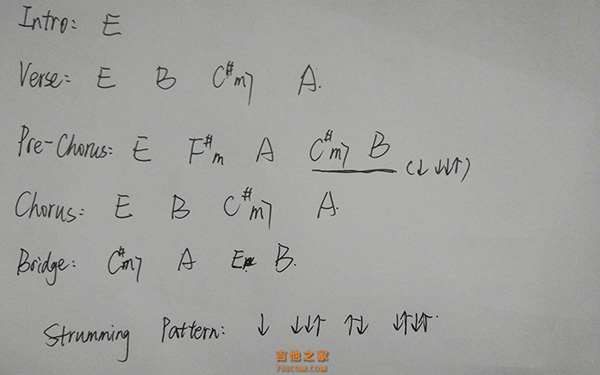 Intro: E
Verse: E B C#m7 A.
Pre-Chorus: E F#m A C#m7 B (↓ ↓↓↑)
Chorus: E B C#m7 A
Bridge: C#m7 A E B.
Strumming Pattern: ↓ ↓↓↑ ↑↓ ↓↑↓↑.
吉他之家
798COM.COM